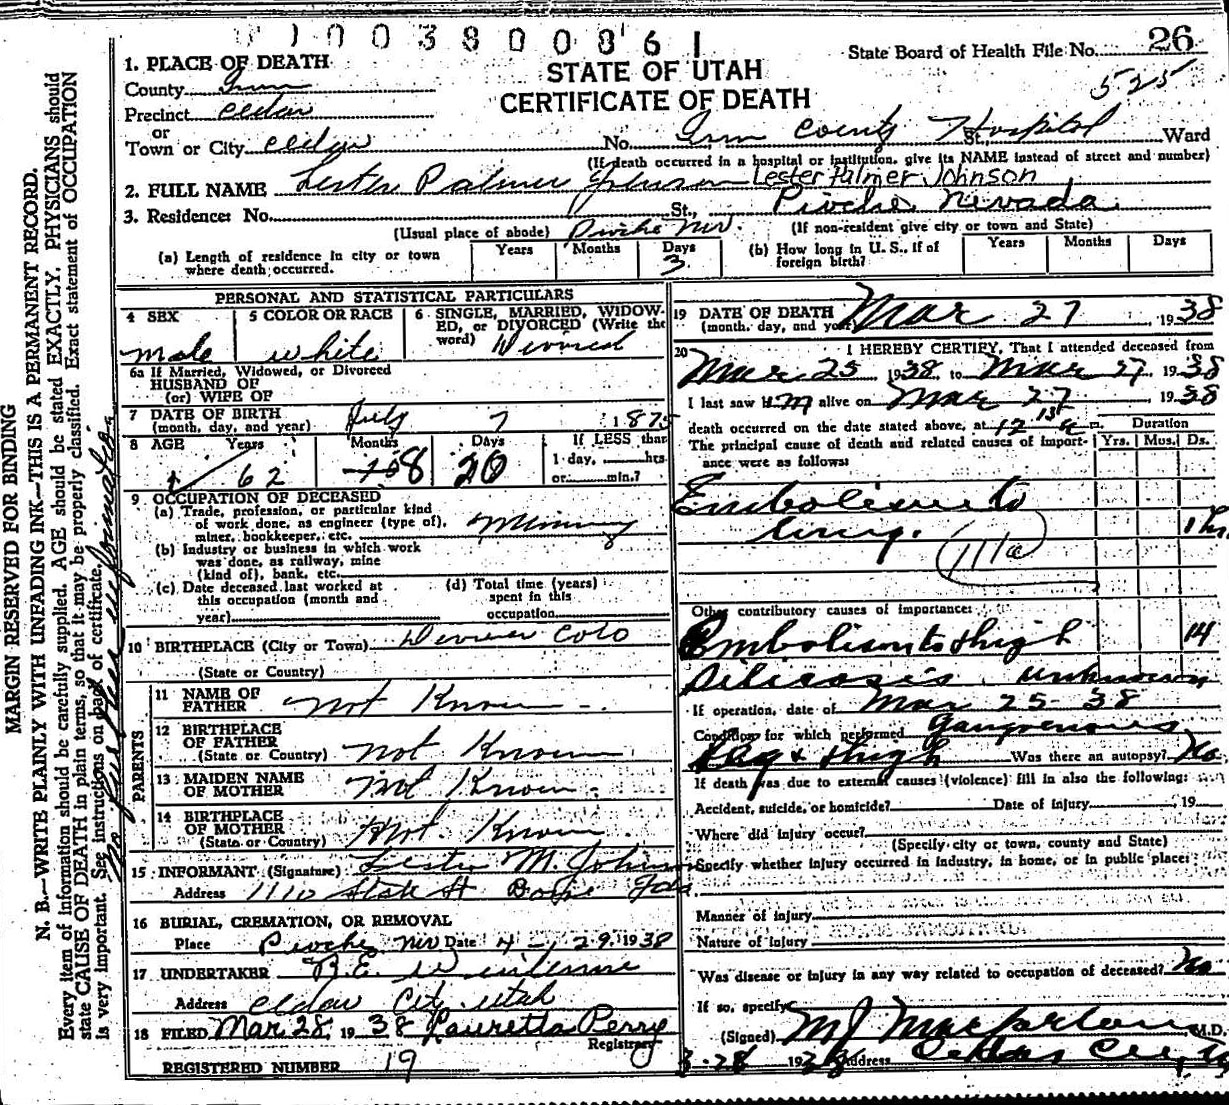 1003800861
State Board of Health File No. 26
525
STATE OF UTAH
CERTIFICATE OF DEATH
1. PLACE OF DEATH
County Iron
Precinct Cedar
or
Town or City Cedar No. Iron County Hospital St., Ward
(If death occurred in a hospital or institution, give its NAME instead of street and number)
2. FULL NAME Lester Palmer Johnson Lester Palmer Johnson
3. Residence: No. St., Pioche Nevada
(Usual place of abode) Pioche Nev. (If non-resident give city or town and State)
(a) Length of residence in city or town where death occurred. Years Months Days 3
(b) How long in U. S., if of foreign birth? Years Months Days
PERSONAL AND STATISTICAL PARTICULARS
4 SEX Male
5 COLOR OR RACE White
6 SINGLE, MARRIED, WIDOWED, or DIVORCED (Write the word)
6a If Married, Widowed, or Divorced
HUSBAND OF
(or) WIFE OF
7 DATE OF BIRTH (month, day, and year) July 7 1875
8 AGE Years 62 Months 8 Days 20
If LESS than 1 day, hrs or min.?
9 OCCUPATION OF DECEASED
(a) Trade, profession, or particular kind of work done, as engineer (type of), miner, bookkeeper, etc. Mining
(b) Industry or business in which work was done, as railway, mine (kind of), bank, etc.
(c) Date deceased last worked at this occupation (month and year)
(d) Total time (years) spent in this occupation
10 BIRTHPLACE (City or Town) Denver Colo
(State or Country)
PARENTS
11 NAME OF FATHER Not Known
12 BIRTHPLACE OF FATHER (State or Country) Not Known
13 MAIDEN NAME OF MOTHER Not Known
14 BIRTHPLACE OF MOTHER (State or Country) Not Known
15 INFORMANT (Signature) Lester M. Johnson
Address 1110 State St Boise Ida
16 BURIAL, CREMATION, OR REMOVAL
Place Pioche Nev Date 29 1938
17 UNDERTAKER
Address Cedar City Utah
18 FILED Mar 28, 1938 Lauretta Perry
Registrar
REGISTERED NUMBER 19
19 DATE OF DEATH (month, day, and year) Mar 27 1938
20 I HEREBY CERTIFY, That I attended deceased from
Mar 25 1938, to Mar 27 1938
I last saw him alive on Mar 27 1938
death occurred on the date stated above, at 12 15 a m.
Duration
The principal cause of death and related causes of importance were as follows: Yrs. Mos. Ds.
Embolism to
lung. 1 hr.
111a
Other contributory causes of importance:
Embolism to thigh 14
Silicosis unknown
If operation, date of Mar 25-38
Condition for which performed Gangrenous
Leg & thigh Was there an autopsy? No
If death was due to external causes (violence) fill in also the following:
Accident, suicide, or homicide? Date of injury 19
Where did injury occur?
(Specify city or town, county and State)
Specify whether injury occurred in industry, in home, or in public place:
Manner of injury
Nature of injury
Was disease or injury in any way related to occupation of deceased? No
If so, specify
(Signed) M J Macfarlane M.D.
3-28 1938 Address Cedar City
MARGIN RESERVED FOR BINDING
N. B.—WRITE PLAINLY WITH UNFADING INK—THIS IS A PERMANENT RECORD.
Every item of information should be carefully supplied. AGE should be stated EXACTLY. PHYSICIANS should
state CAUSE OF DEATH in plain terms, so that it may be properly classified. Exact statement of OCCUPATION
is very important. See instructions on back of certificate.